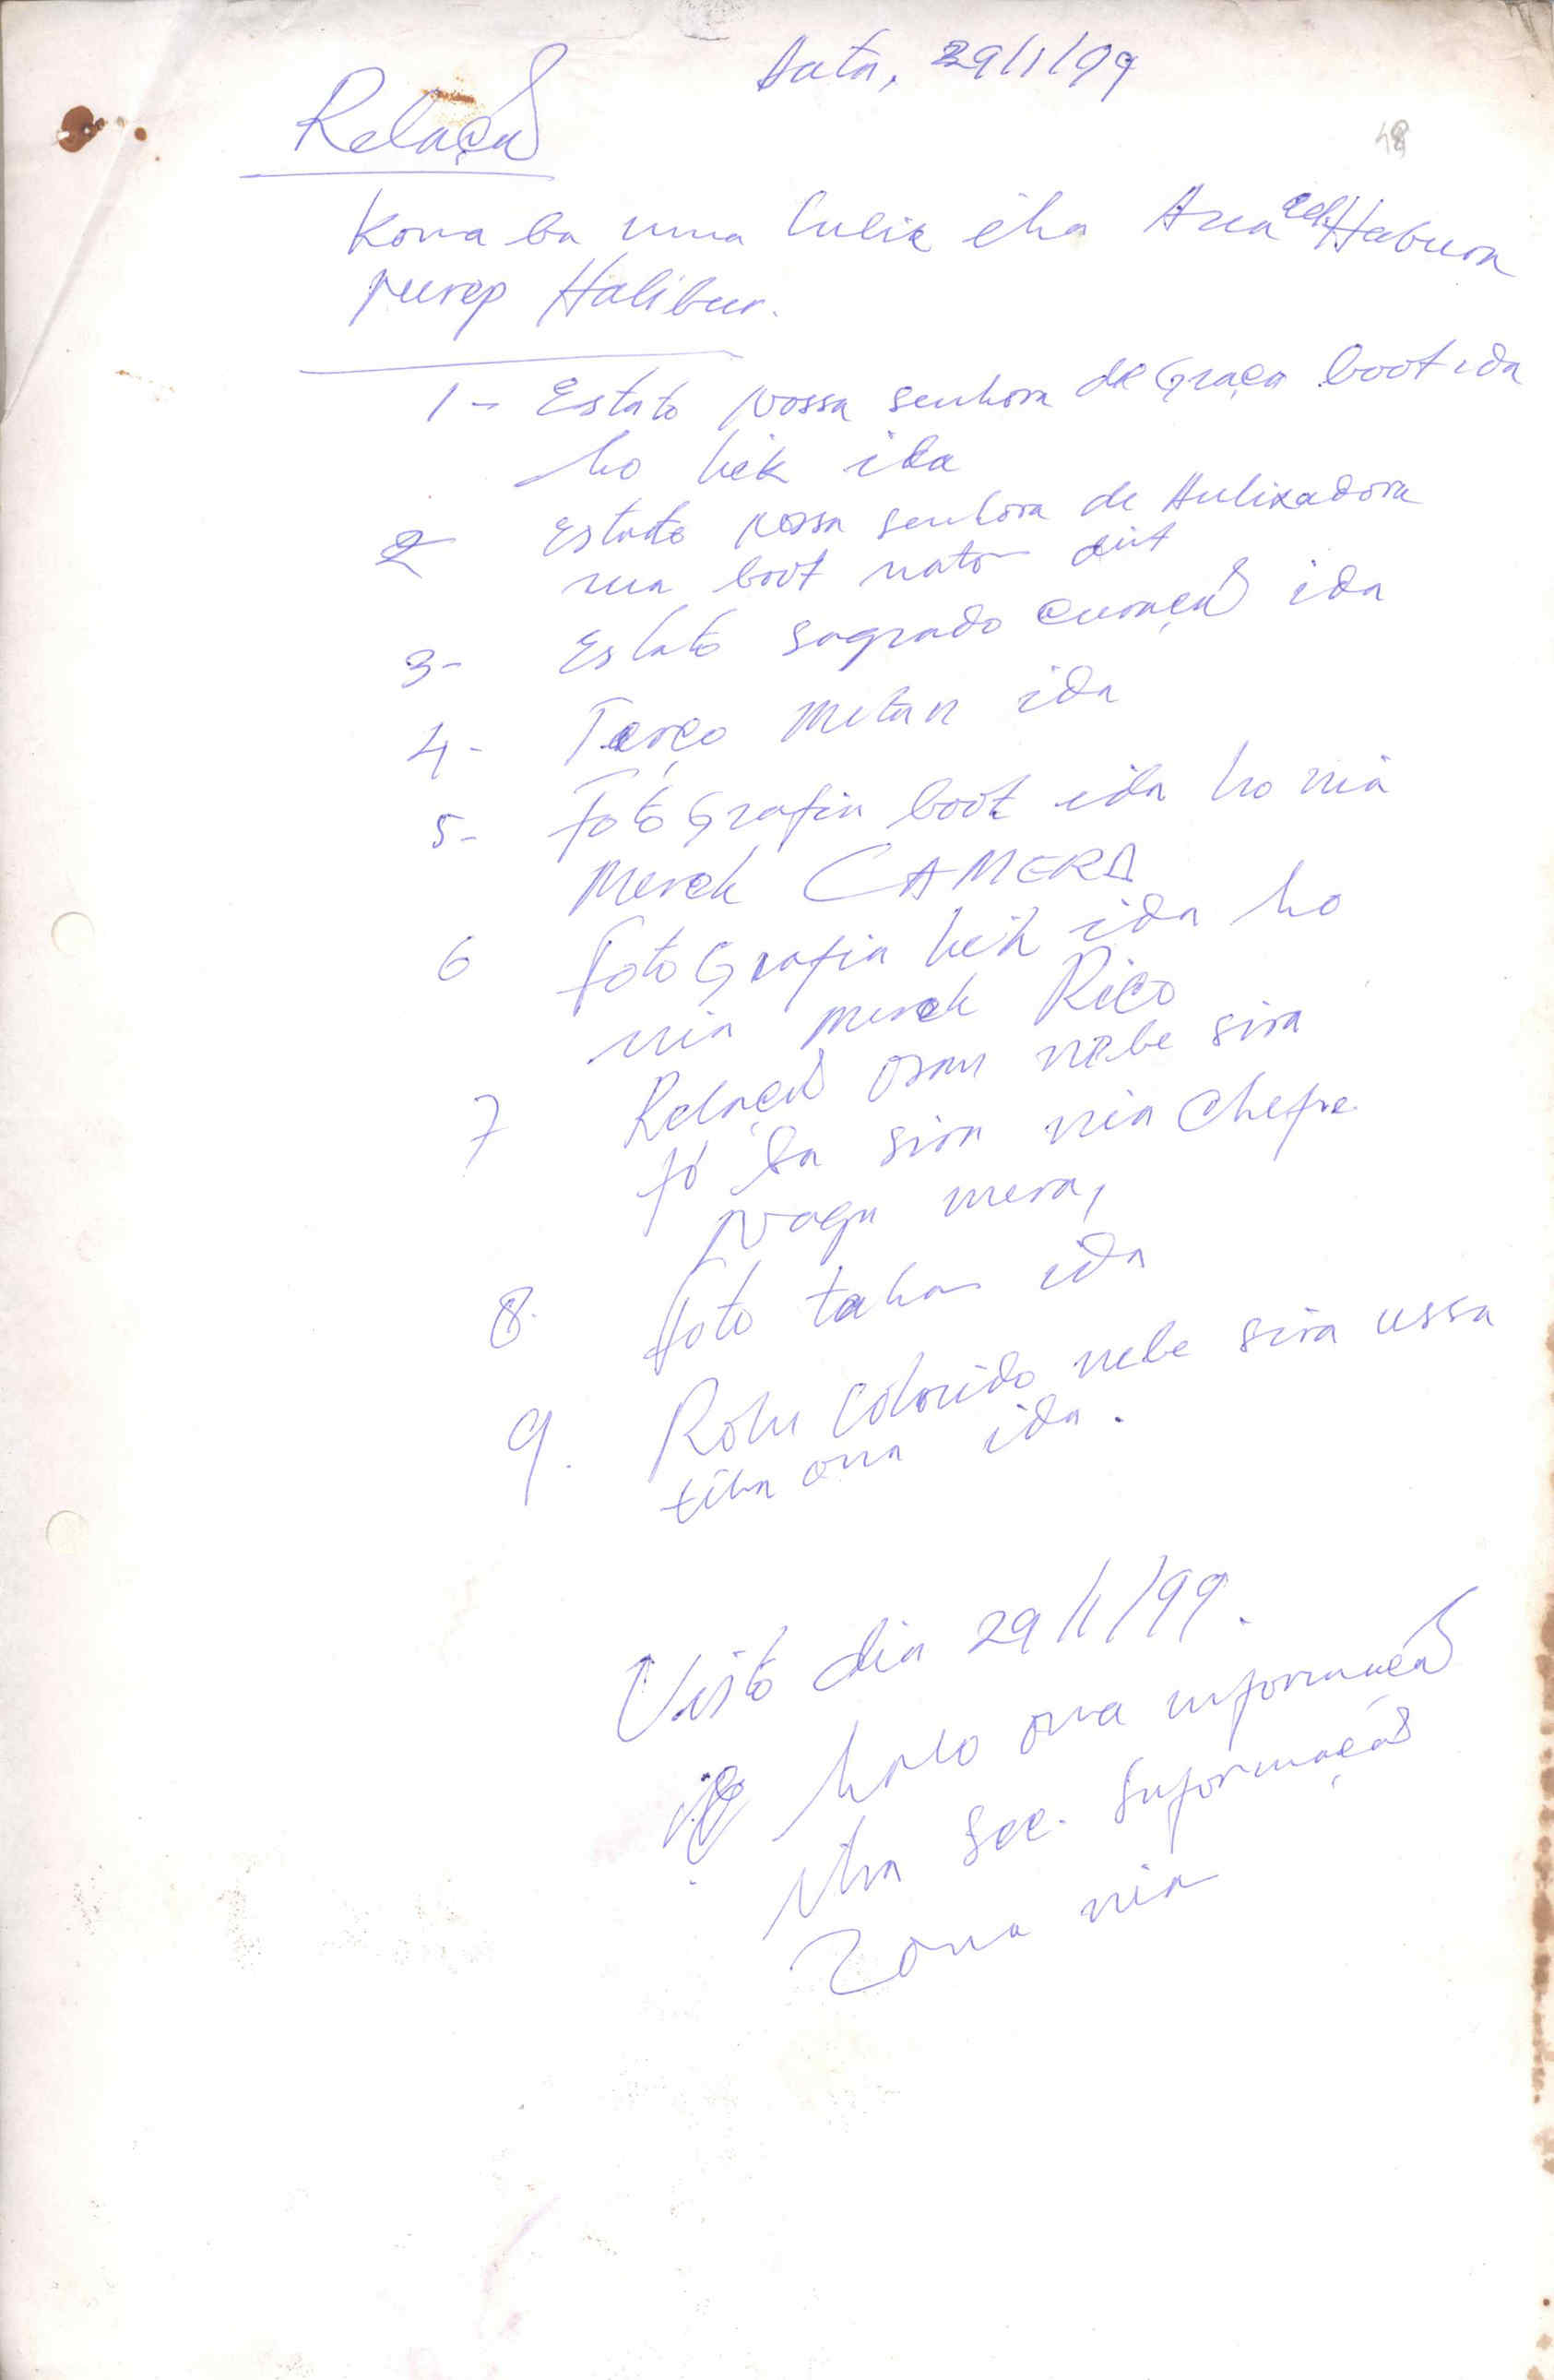 Data, 29/1/99
48
Relação
Kona ba uma lulik iha Area Haburas
nurep Halibur.
1- Estato Nossa senhora de Graça boot ida
ho kik ida
2 Estato Nossa senhora de Aulixadora
rua boot nato deit
3- Estato Sagrado curação ida
4- Terço Metan ida
5- Foto Grafia boot ida ho nia
Merek CAMERA
6 Foto Grafia kik ida ho
nia merek Rico
7 Relação osan nebe sira
fó ba sira nia Chefe
Nagu mera,
8. Foto tahan ida
9. Rolu Colorido nebe sira ussa
tiha ona ida.
Visto dia 29/1/99.
halo ona informação
iha Sec. Informação
Zona nia